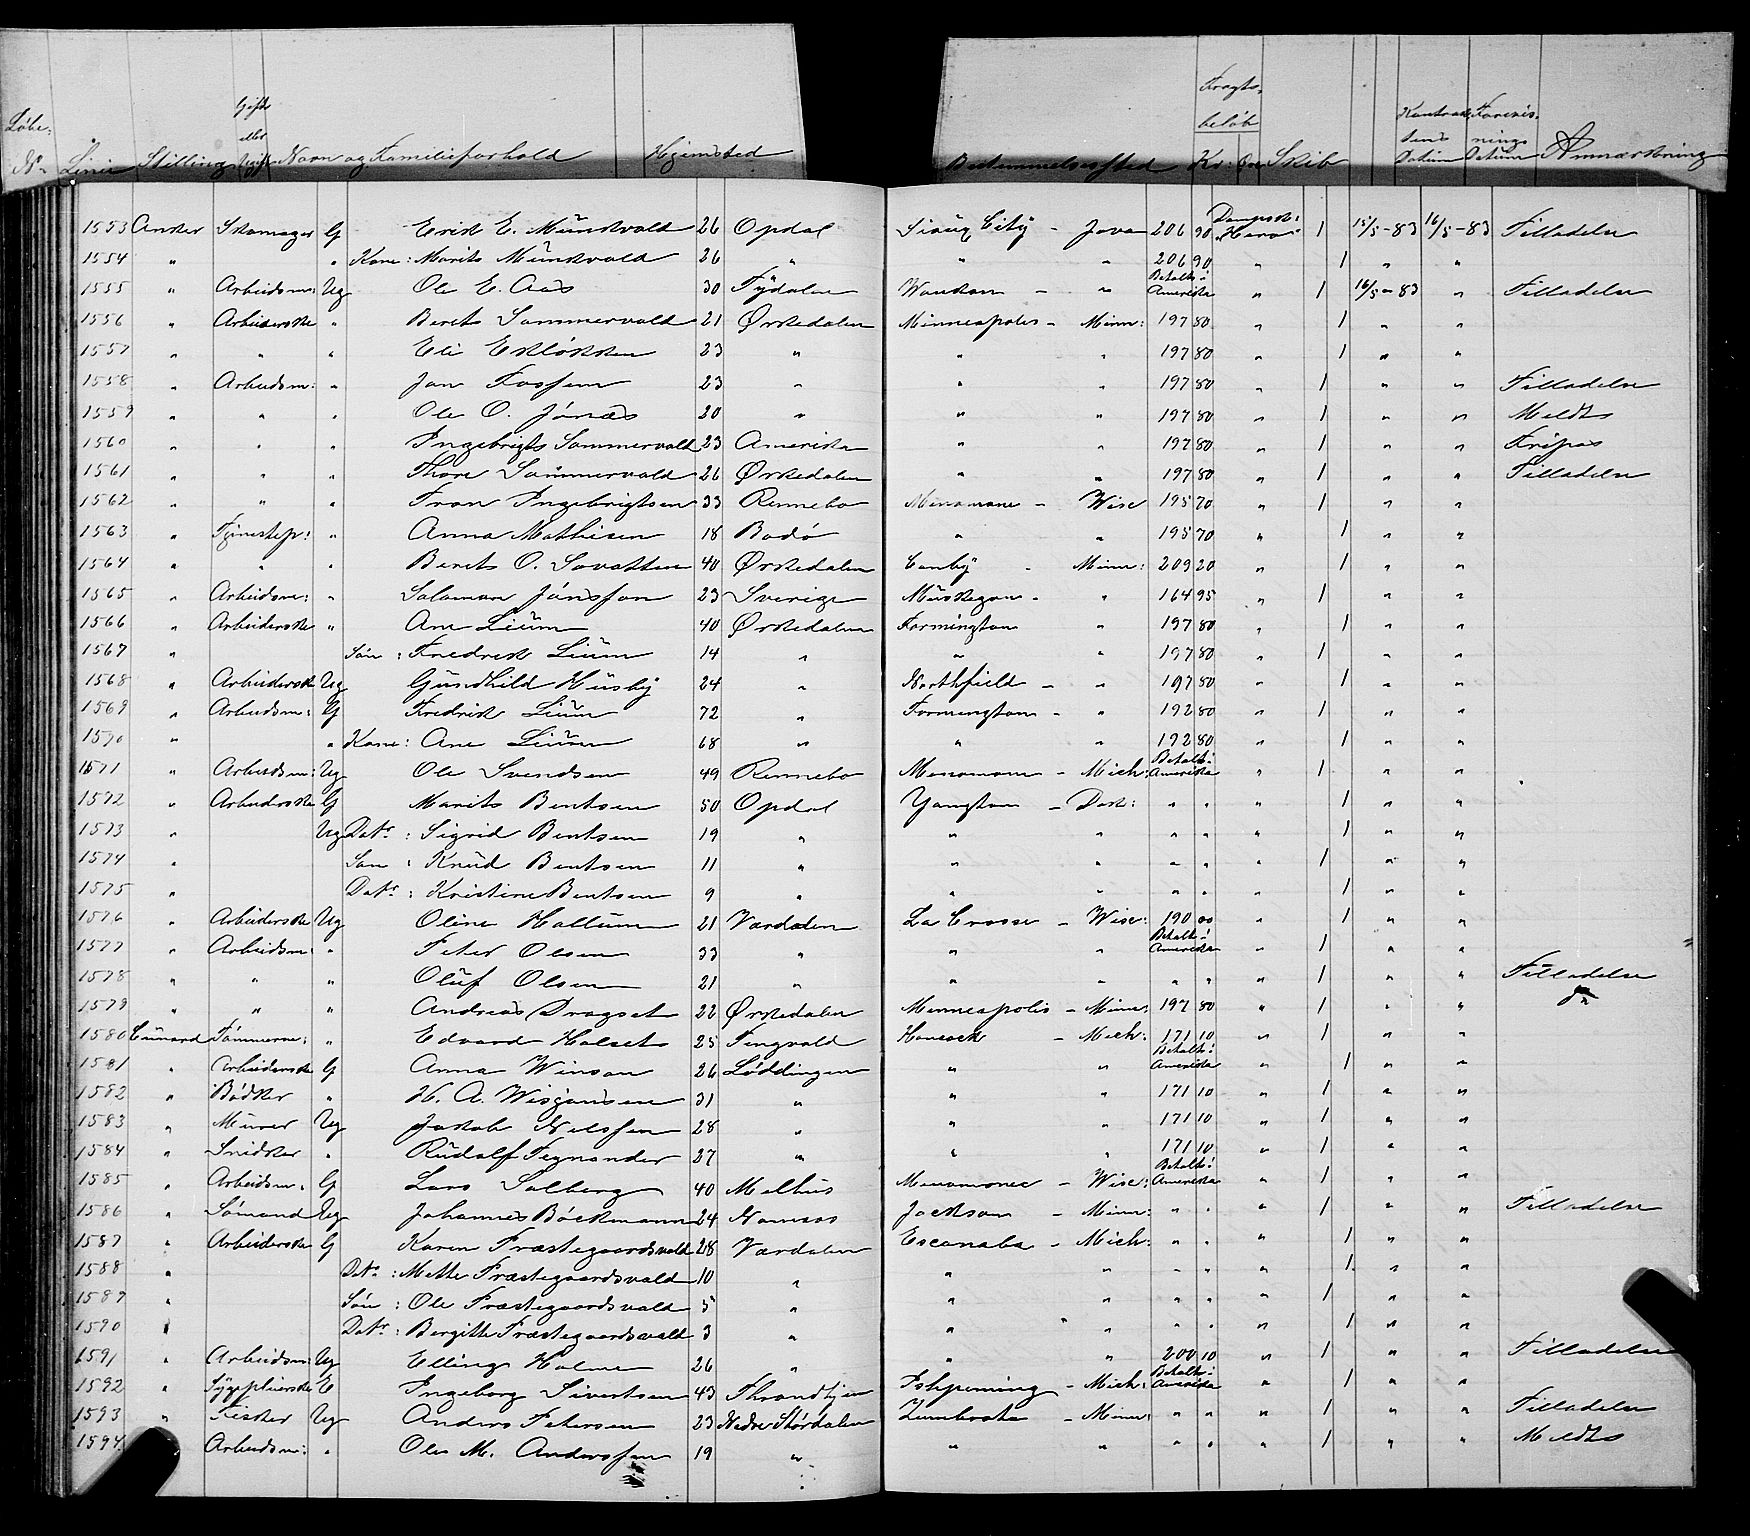 Løbe- No Linie Stilling Gift eller Ugift Navn og Familieforhold Hjemsted Bestemmelsessted Fragtbeløb Kr: Øre Skib Kontraktens Datum Forevisnings Datum Anmærkning
1553 Anker Skomager G Erik E. Munkvold 26 Opdal Sioux City - Jova 206 90 Dampsk: "Hero" 1 15/5-83 16/5-83 Tilladelse
1554 " " Kone: Marit Munkvold 26 " " " 206 90 " 1 " "
1555 " Arbeidsm: Ug Ole E. Aas 30 Tydalen Waukon - " Betalt i Amerika " 1 16/5-83 " Tilladelse
1556 " Arbeiderske " Berit Sommervold 21 Ørkedalen Minneapolis - Minn: 197 80 " 1 " "
1557 " " " Eli Ekløkken 23 " " " 197 80 " 1 " "
1558 " Arbeidsm: " Jon Fossem 23 " " " 197 80 " 1 " " Tilladelse
1559 " " " Ole O. Jønæs 20 " " " 197 80 " 1 " " Meldt
1560 " " " Ingebrigt Sommervold 23 Amerika " " 197 80 " 1 " " Fripas
1561 " " " Thore Sommervold 26 Ørkedalen " " 197 80 " 1 " " Tilladelse
1562 " " " Iver Ingebrigtsen 33 Rennebo Menomone - Wisc 195 70 " 1 " "
1563 " Tjenestep: " Anna Mathisen 18 Bodø " " 195 70 " 1 " "
1564 " " " Berit O. Sovatten 40 Ørkedalen Canby - Minn: 209 20 " 1 " "
1565 " Arbeidsm: " Salomon Jonsson 23 Sverige Muskegon - " 164 95 " 1 " "
1566 " Arbeiderske " Ane Lium 40 Ørkedalen Farmington " 197 80 " 1 " "
1567 " Søn: Fredrik Lium 14 " " " 197 80 " 1 " "
1568 " Arbeiderske Ug Gundhild Husby 24 " Northfield - " 197 80 " 1 " "
1569 " Arbeidsm: G Fredrik Lium 72 " Farmington - " 192 80 " 1 " "
1570 " " Kone: Ane Lium 68 " " " 192 80 " 1 " "
1571 " Arbeidsm: Ug Ole Svendsen 49 Rennebo Menomone - Mich: Betalt i Amerika " 1 " "
1572 " Arbeiderske G Marit Bentsen 50 Opdal Yangton - Dak: " " " 1 " "
1573 " Ug Datr: Sigrid Bentsen 19 " " " " " " 1 " "
1574 " Søn: Knud Bentsen 11 " " " " " " 1 " "
1575 " Datr: Kristine Bentsen 9 " " " " " " 1 " "
1576 " Arbeiderske Ug Oline Hallum 21 Værdalen La Crosse - Wisc: 190 00 " 1 " "
1577 " Arbeidsm: " Peter Olsen 33 " " " Betalt i Amerika " 1 " "
1578 " " " Oluf Olsen 21 " " " " " " 1 " " Tilladelse
1579 " " " Andreas Dragset 22 Ørkedalen Minneapolis - Minn: 197 80 " 1 " " do
1580 Cunard Tømmerm: " Edvard Halset 25 Tingvold Hancock - Mich: 171 10 " 1 " "
1581 " Arbeiderske G Anna Winson 26 Løddingen " " Betalt i Amerika " 1 " "
1582 " Bødker " H. A. Wisjansen 31 " " " 171 10 " 1 " "
1583 " Murer Ug Jakob Nilssen 28 " " " 171 10 " 1 " "
1584 " Snidker " Rudolf Tegnander 27 " " " 171 10 " 1 " "
1585 " Arbeidsm: G Lars Solberg 40 Melhus Menomonee - Wisc: Betalt i Amerika " 1 " "
1586 " Sømand Ug Johannes Bøckmann 24 Namsos Jackson - Minn: " " " 1 " " Tilladelse
1587 " Arbeiderske G Karen Præstegaardsvald 28 Værdalen Escanaba - Mich: " " " 1 " "
1588 " Datr: Mette Præstegaardsvald 10 " " " " " " 1 " "
1589 " Søn: Ole Præstegaardsvald 5 " " " " " " 1 " "
1590 " Datr: Bergitte Præstegaardsvald 3 " " " " " " 1 " "
1591 " Arbeidsm: Ug Elling Holmen 26 " " " 200 10 " 1 " " Tilladelse
1592 " Sypigerske E Ingeborg Sivertsen 43 Throndhjem Ishpeming - Mich: Betalt i Amerika " 1 " "
1593 " Fisker Ug Anders Petersen 23 Nedre Størdalen Zumbrota - Minn: " " " 1 " " Tilladelse
1594 " Arbeidsm: " Ole M. Anderssen 19 " " " " " " 1 " " Meldt